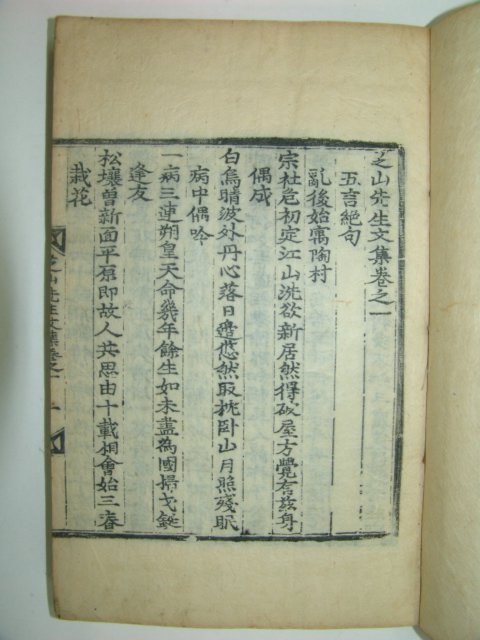 芝山先生文集卷之一
五言絶句
亂後始寓陶村
宗社危初定江山洗欲新居然得破屋方覺有玆身
偶成
白鳥晴波外丹心落日邊悠然取枕臥山月照殘眠
病中偶吟
一病三逢朔皇天命幾年餘生如未盡為國掃戈鋋
逢友
松壤曾新面平原即故人共思由十載相會始三春
栽花
芝山先生文集卷之一